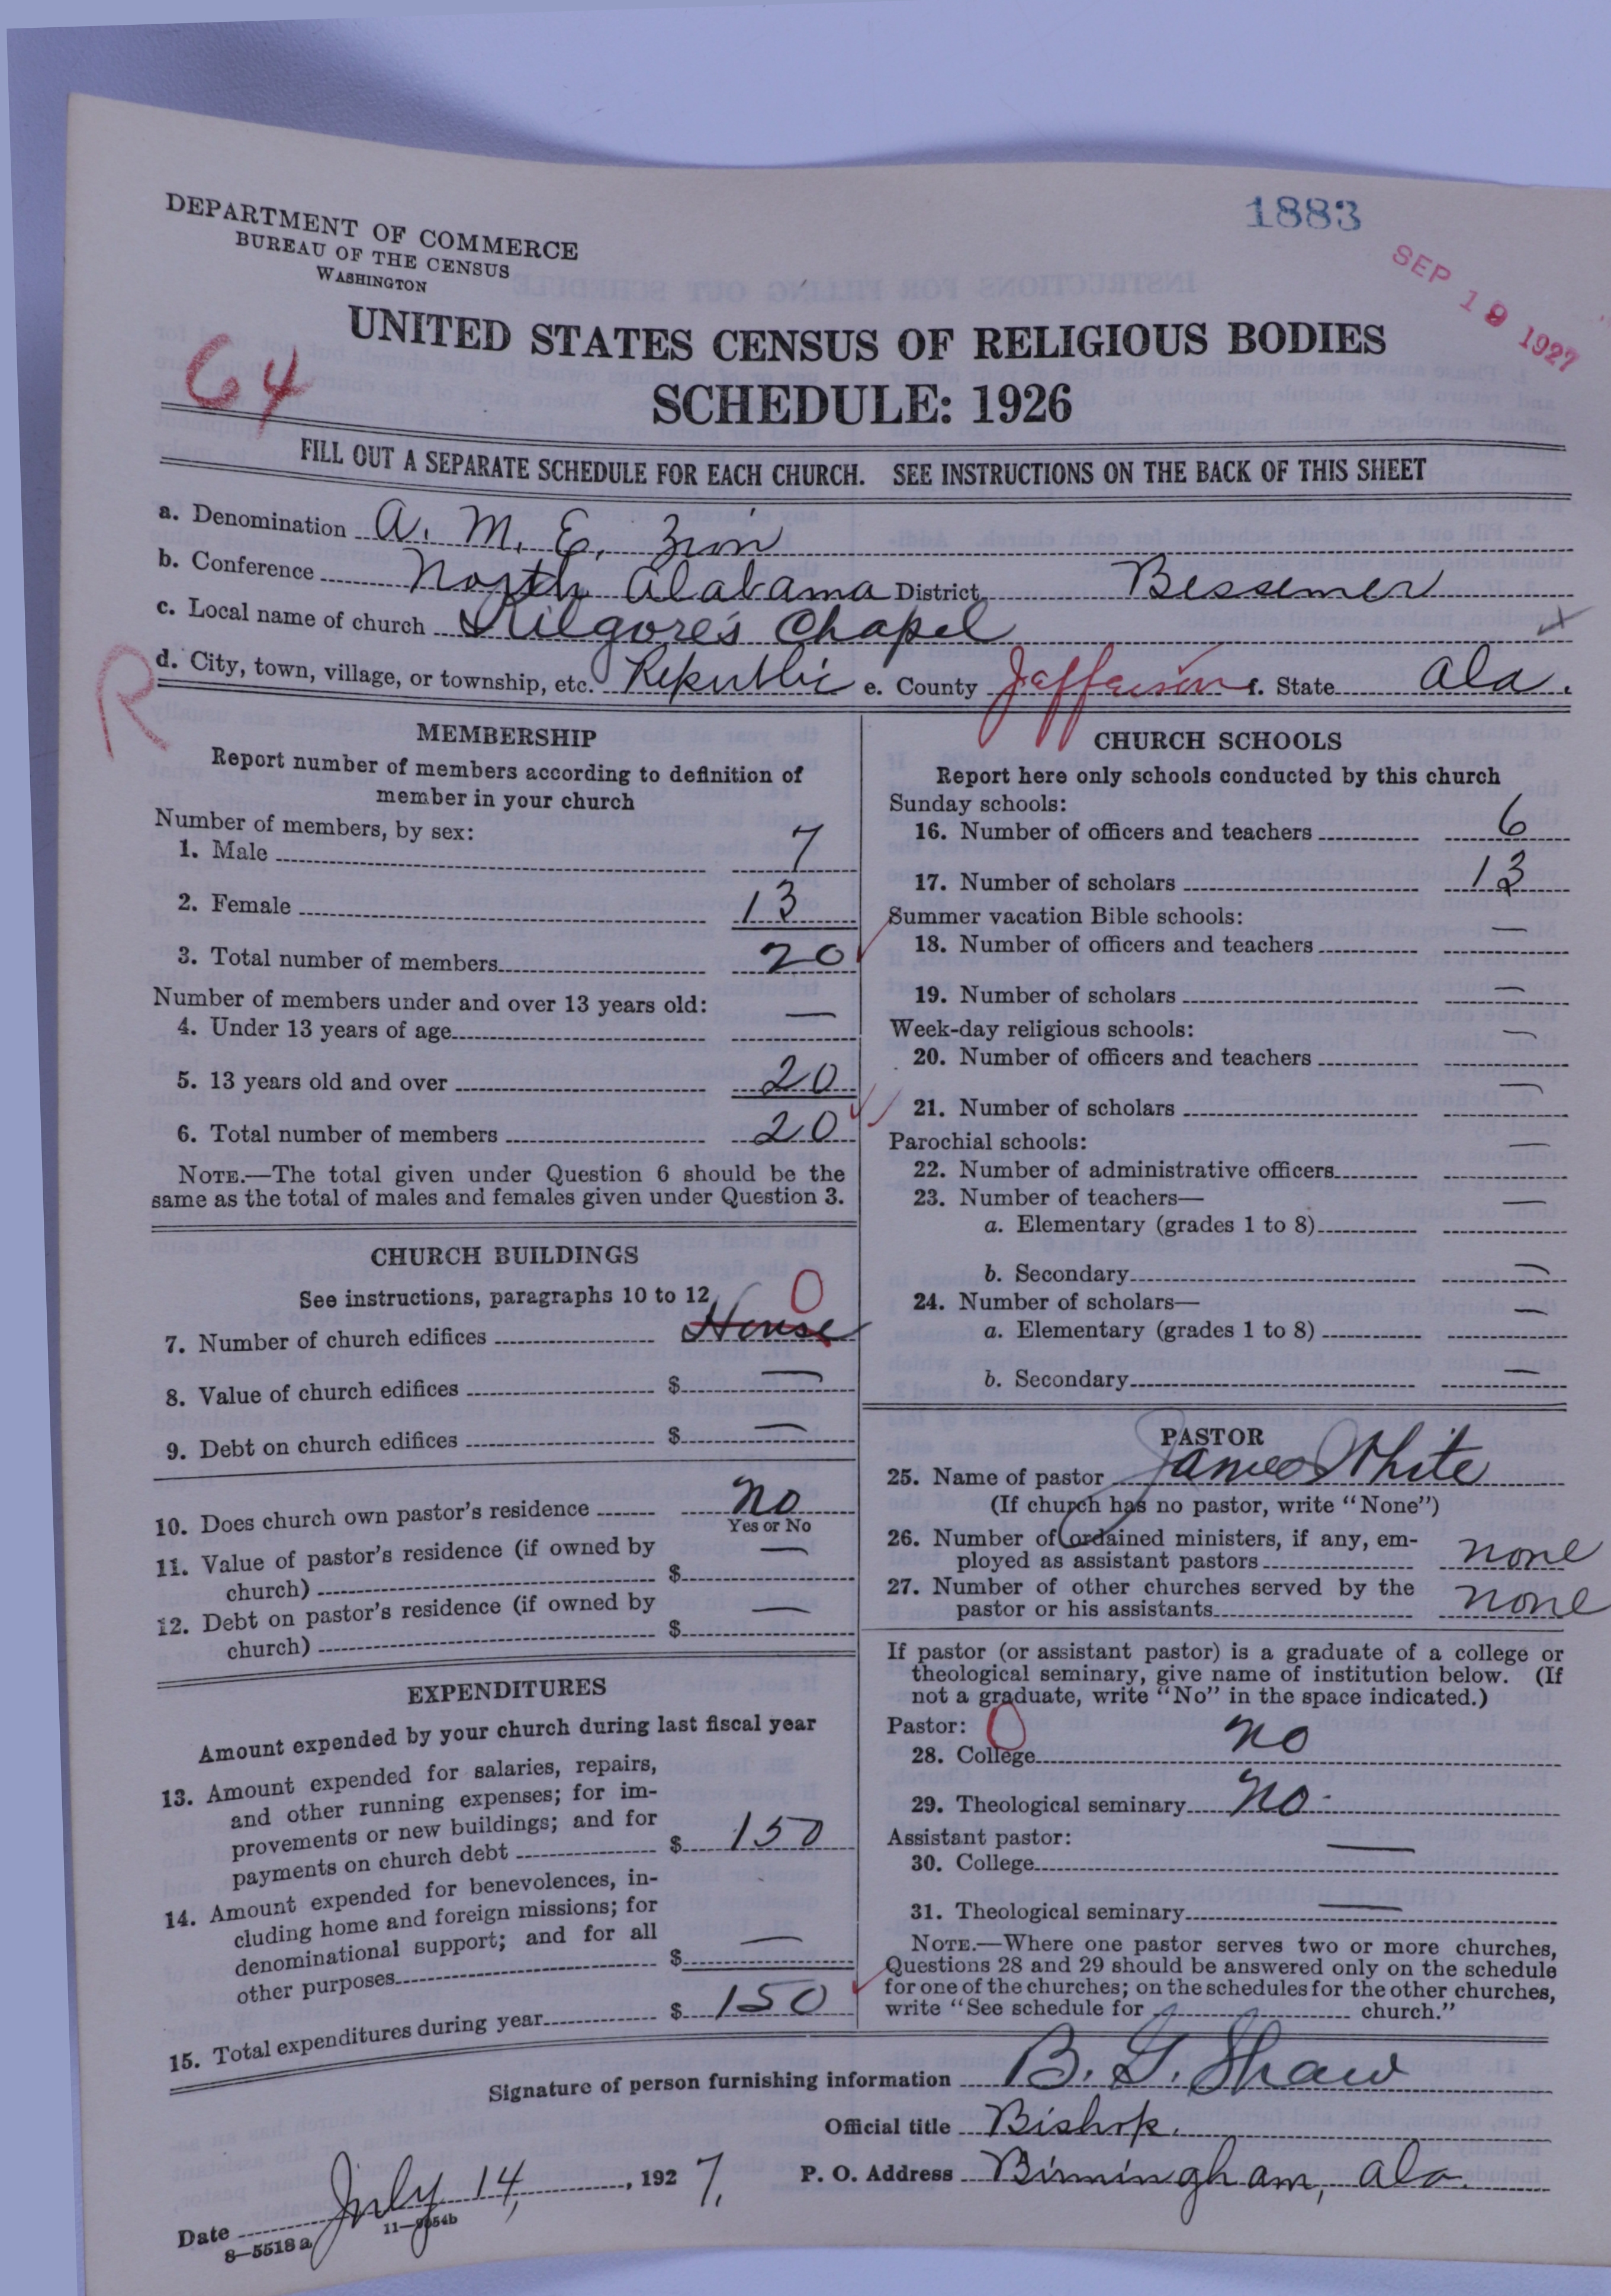 1883
SEP 19 1927
DEPARTMENT OF COMMERCE
BUREAU OF THE CENSUS
WASHINGTON
UNITED STATES CENSUS OF RELIGIOUS BODIES
SCHEDULE: 1926
64
FILL OUT A SEPARATE SCHEDULE FOR EACH CHURCH. SEE INSTRUCTIONS ON THE BACK OF THIS SHEET
a. Denomination A. M. E. Zion
b. Conference North Alabama District Bessemer
c. Local name of church Kilgore's Chapel
R
d. City, town, village, or township, etc. Republic e. County Jefferson f. State Ala.
MEMBERSHIP
Report number of members according to definition of
member in your church
Number of members, by sex:
1. Male 7
2. Female 13
3. Total number of members 20
Number of members under and over 13 years old:
4. Under 13 years of age —
5. 13 years old and over 20
6. Total number of members 20
NOTE.—The total given under Question 6 should be the
same as the total of males and females given under Question 3.
CHURCH BUILDINGS
See instructions, paragraphs 10 to 12
0
7. Number of church edifices House
8. Value of church edifices $ —
9. Debt on church edifices $ —
10. Does church own pastor's residence no
Yes or No
11. Value of pastor's residence (if owned by
church) $ —
12. Debt on pastor's residence (if owned by
church) $ —
EXPENDITURES
Amount expended by your church during last fiscal year
13. Amount expended for salaries, repairs,
and other running expenses; for im-
provements or new buildings; and for
payments on church debt $ 150
14. Amount expended for benevolences, in-
cluding home and foreign missions; for
denominational support; and for all
other purposes $ —
15. Total expenditures during year $ 150
CHURCH SCHOOLS
Report here only schools conducted by this church
Sunday schools:
16. Number of officers and teachers 6
17. Number of scholars 13
Summer vacation Bible schools:
18. Number of officers and teachers —
19. Number of scholars —
Week-day religious schools:
20. Number of officers and teachers —
21. Number of scholars —
Parochial schools:
22. Number of administrative officers —
23. Number of teachers—
a. Elementary (grades 1 to 8) —
b. Secondary —
24. Number of scholars—
a. Elementary (grades 1 to 8) —
b. Secondary —
PASTOR
25. Name of pastor James White
(If church has no pastor, write "None")
26. Number of ordained ministers, if any, em-
ployed as assistant pastors none
27. Number of other churches served by the
pastor or his assistants none
If pastor (or assistant pastor) is a graduate of a college or
theological seminary, give name of institution below. (If
not a graduate, write "No" in the space indicated.)
Pastor: 0
28. College no
29. Theological seminary no
Assistant pastor:
30. College —
31. Theological seminary —
NOTE.—Where one pastor serves two or more churches,
Questions 28 and 29 should be answered only on the schedule
for one of the churches; on the schedules for the other churches,
write "See schedule for church."
Signature of person furnishing information B. G. Shaw
Official title Bishop.
Date July 14, 1927, P. O. Address Birmingham, Ala.
8—5518a 11—9654b